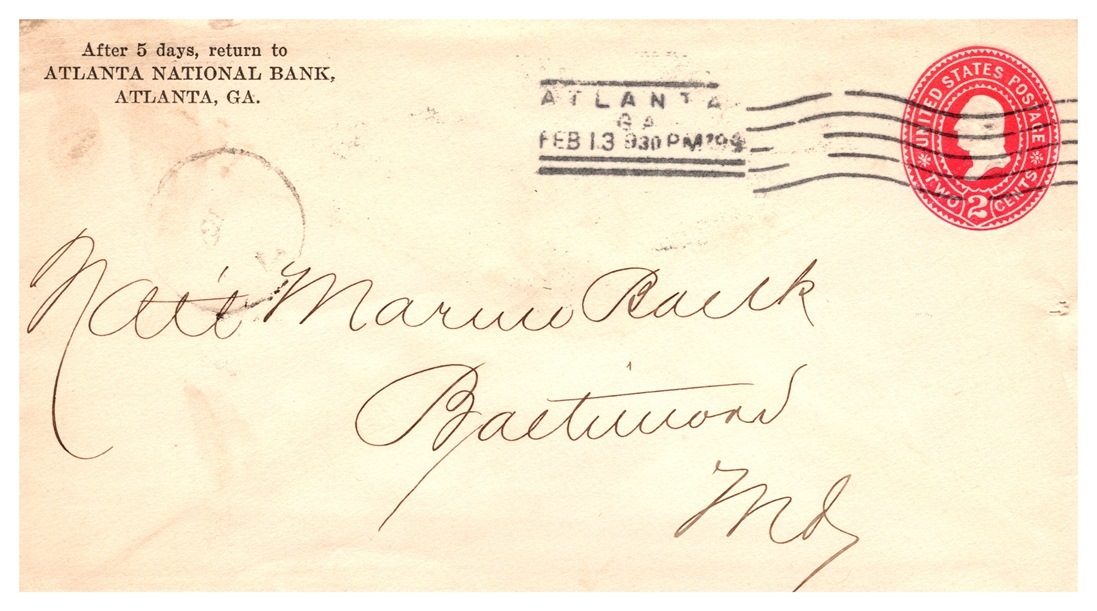 After 5 days, return to
ATLANTA NATIONAL BANK,
ATLANTA, GA.
ATLANTA
GA
FEB 13 930 PM
UNITED STATES POSTAGE
TWO 2 CENTS
Nat'l Marine Bank
Baltimore
Md